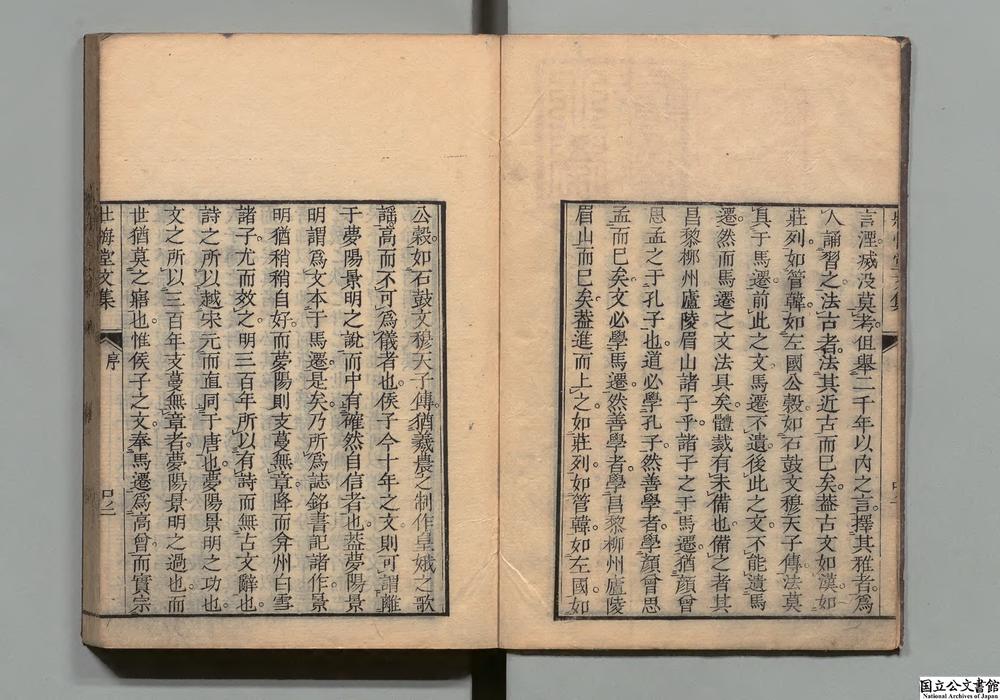 言湮㓕没莫考但舉二千年以內之言擇其雅者爲
人誦習之法古者法其近古而已矣葢古文如漢如
莊列如管韓如左國公穀如石鼓文穆天子傳法莫
真于馬遷前此之文馬遷不遺後此之文不能遺馬
遷然而馬遷之文法具矣體裁有未備也備之者其
昌黎柳州廬陵眉山諸子乎諸子之于馬遷猶顏曾
思孟之于孔子也道必學孔子然善學者學顏曾思
孟而已矣文必學馬遷然善學者學昌黎柳州廬陵
眉山而已矣葢進而上之如莊列如管韓如左國如
公穀如石鼓文穆天子傳猶羲農之制作皇娥之歌
謡高而不可爲儀者也侯子今十年之文則可謂離
于夢陽景明之說而中有確然自信者也葢夢陽景
明謂爲文本于馬遷是矣乃所爲誌銘書記諸作景
明猶稍稍自好而夢陽則支蔓無章降而弇州白雪
諸子尤而效之明三百年所以有詩而無古文辭也
詩之所以越宋元而直同于唐也夢陽景明之功也
文之所以三百年支蔓無章者夢陽景明之過也而
世猶莫之寤也惟侯子之文奉馬遷爲高曾而實宗
壯悔堂文集 序
国立公文書館
National Archives of Japan